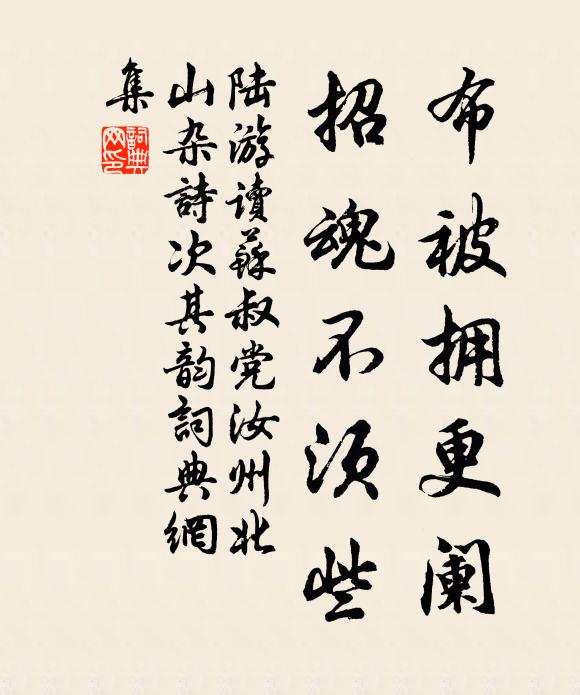 布被拥更阑
招魂不须些
陆游读蘇叔党汝州北
山杂詩次其韵詞典網
集
詞典
网印